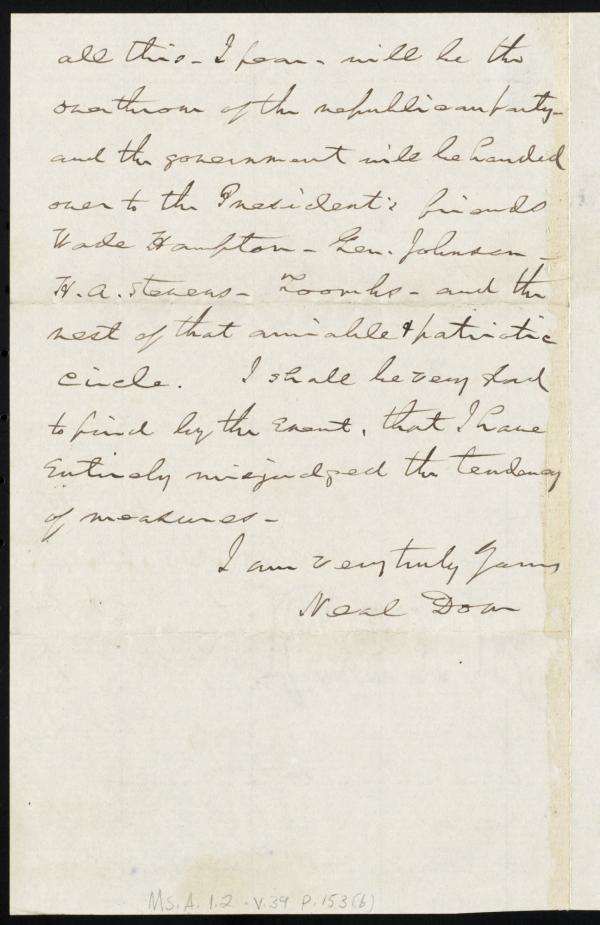 all this - I fear - will be the
overthrow of the republican party -
and the government will be handed
over to the President's friends
Wade Hampton - Gen. Johnson -
H. A. Stevens - Toombs - and the
rest of that amiable & patriotic
circle. I shall be very glad
to find by the Event, that I have
Entirely misjudged the tendency
of measures -
I am very truly Yours
Neal Dow
Ms. A. 1.2 - v. 39 p. 153 (b)